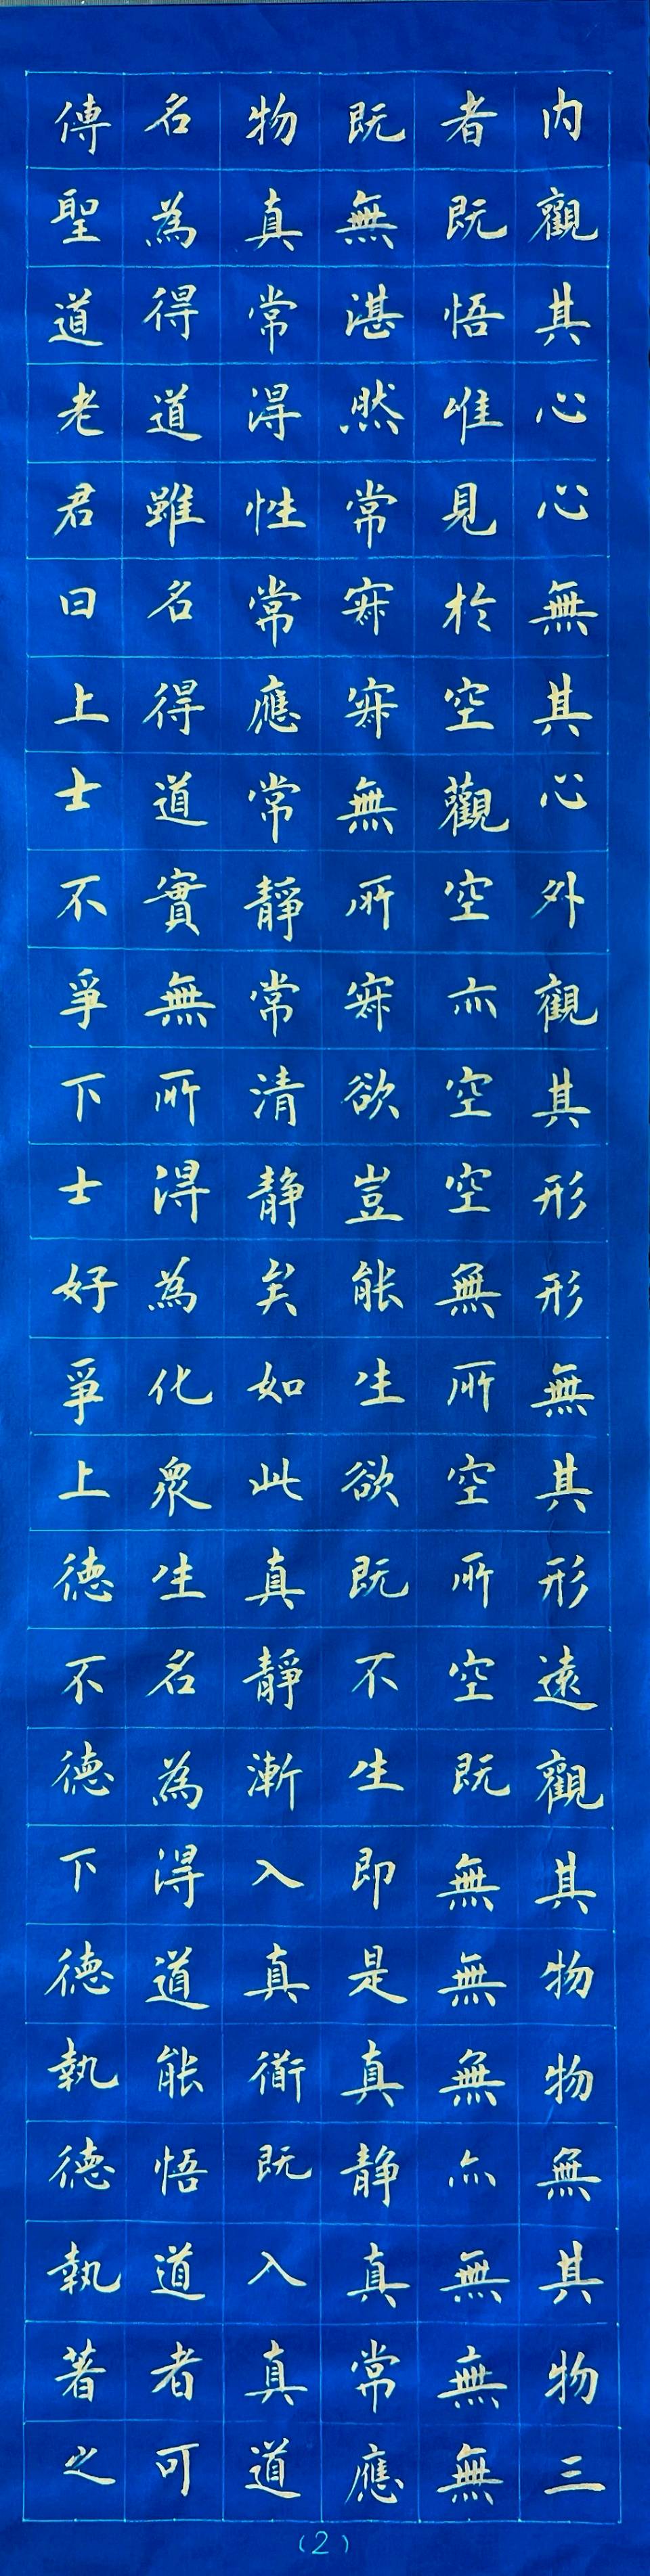 内觀其心心無其心外觀其形形無其形遠觀其物物無其物三
者既悟唯見於空觀空亦空空無所空所空既無無無亦無無無
既無湛然常寂寂無所寂欲豈能生欲既不生即是真静真常應
物真常得性常應常靜常清静矣如此真靜漸入真道既入真道
名為得道雖名得道實無所得為化衆生名為得道能悟道者可
傳聖道老君曰上士不爭下士好爭上德不德下德執德執著之
(2)